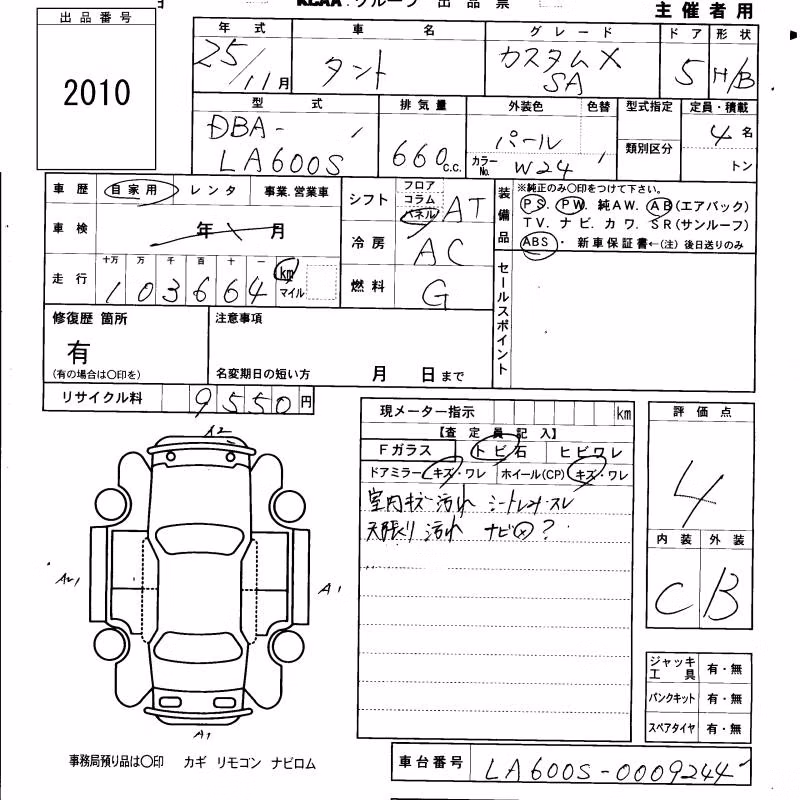 KCAA グループ 出品票
主催者用
出品番号
2010
年式 車名 グレード ドア 形状
25/11月 タント カスタムX SA 5 H/B
型式 排気量 外装色 色替 型式指定 定員・積載
DBA-LA600S 660c.c. パール 類別区分 4名
カラーNo. W24 トン
車歴 自家用 レンタ 事業.営業車
車検 年 月
走行 十万 万 千 百 十 一
103664 km マイル
シフト フロア コラム パネル AT
冷房 AC
燃料 G
装備品
※純正のみ〇印をつけて下さい。
PS. PW. 純AW. AB(エアバック)
TV. ナビ. カワ. SR(サンルーフ)
ABS・ 新車保証書←(注) 後日送りのみ
セールスポイント
修復歴 箇所
有
(有の場合は〇印を)
注意事項
名変期日の短い方 月 日まで
リサイクル料 9550円
現メーター指示 km
【査定員記入】
Fガラス トビ石 ヒビワレ
ドアミラー キズ・ワレ ホイール(CP) キズ・ワレ
室内キズ 汚れ シートしみ・スレ
天張り 汚れ ナビ⊗?
評価点
4
内装 外装
C B
A2
A2,1
A1
A1
ジャッキ工具 有・無
パンクキット 有・無
スペアタイヤ 有・無
事務局預り品は〇印 カギ リモコン ナビロム
車台番号 LA600S-0009244